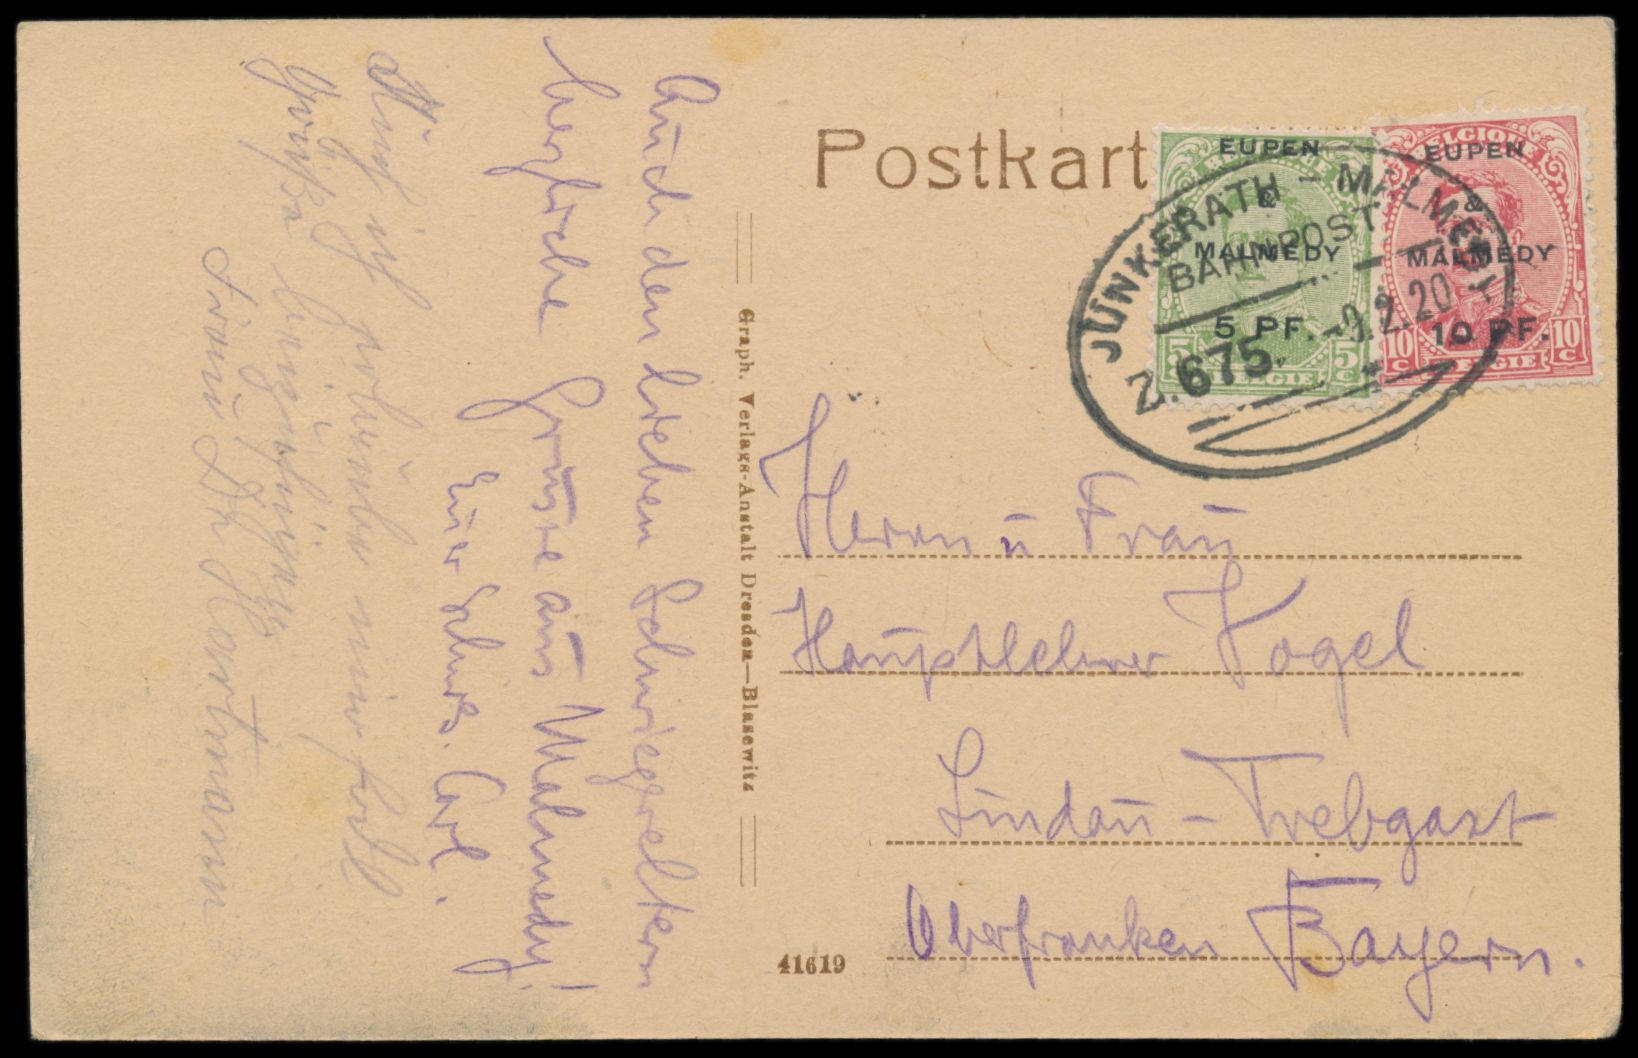 Postkart
EUPEN
&
MALMEDY
5 PF.
5 5
C
BELGIË
BELGIQUE
EUPEN
&
MALMEDY
10 PF.
10 10
C C
BELGIË
JÜNKERATH - MALMEDY
BAHNPOST
Z. 675
9.2.20
Herrn u Frau
Hauptlehrer Vogel
Lindau - Trebgast
Oberfranken Bayern.
41619
Graph. Verlags-Anstalt Dresden—Blasewitz
Auch den lieben Schwiegereltern
herzliche Grüsse aus Malmedy!
Euer Schws. Carl.
Auch ich erlaube mir
Grüße
Franz Hartmann